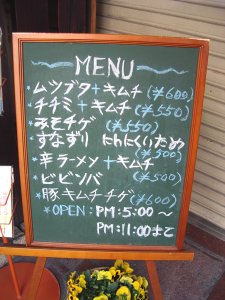 MENU
*ムツブタ+キムチ (¥600)
*チヂミ+キムチ (¥550)
*みそチゲ (¥550)
*すなずり にんにくいため (¥500)
*辛ラーメン+キムチ
*ビビンバ (¥500)
*豚キムチチゲ (¥600)
*OPEN:PM:5:00~
PM:11:00まで